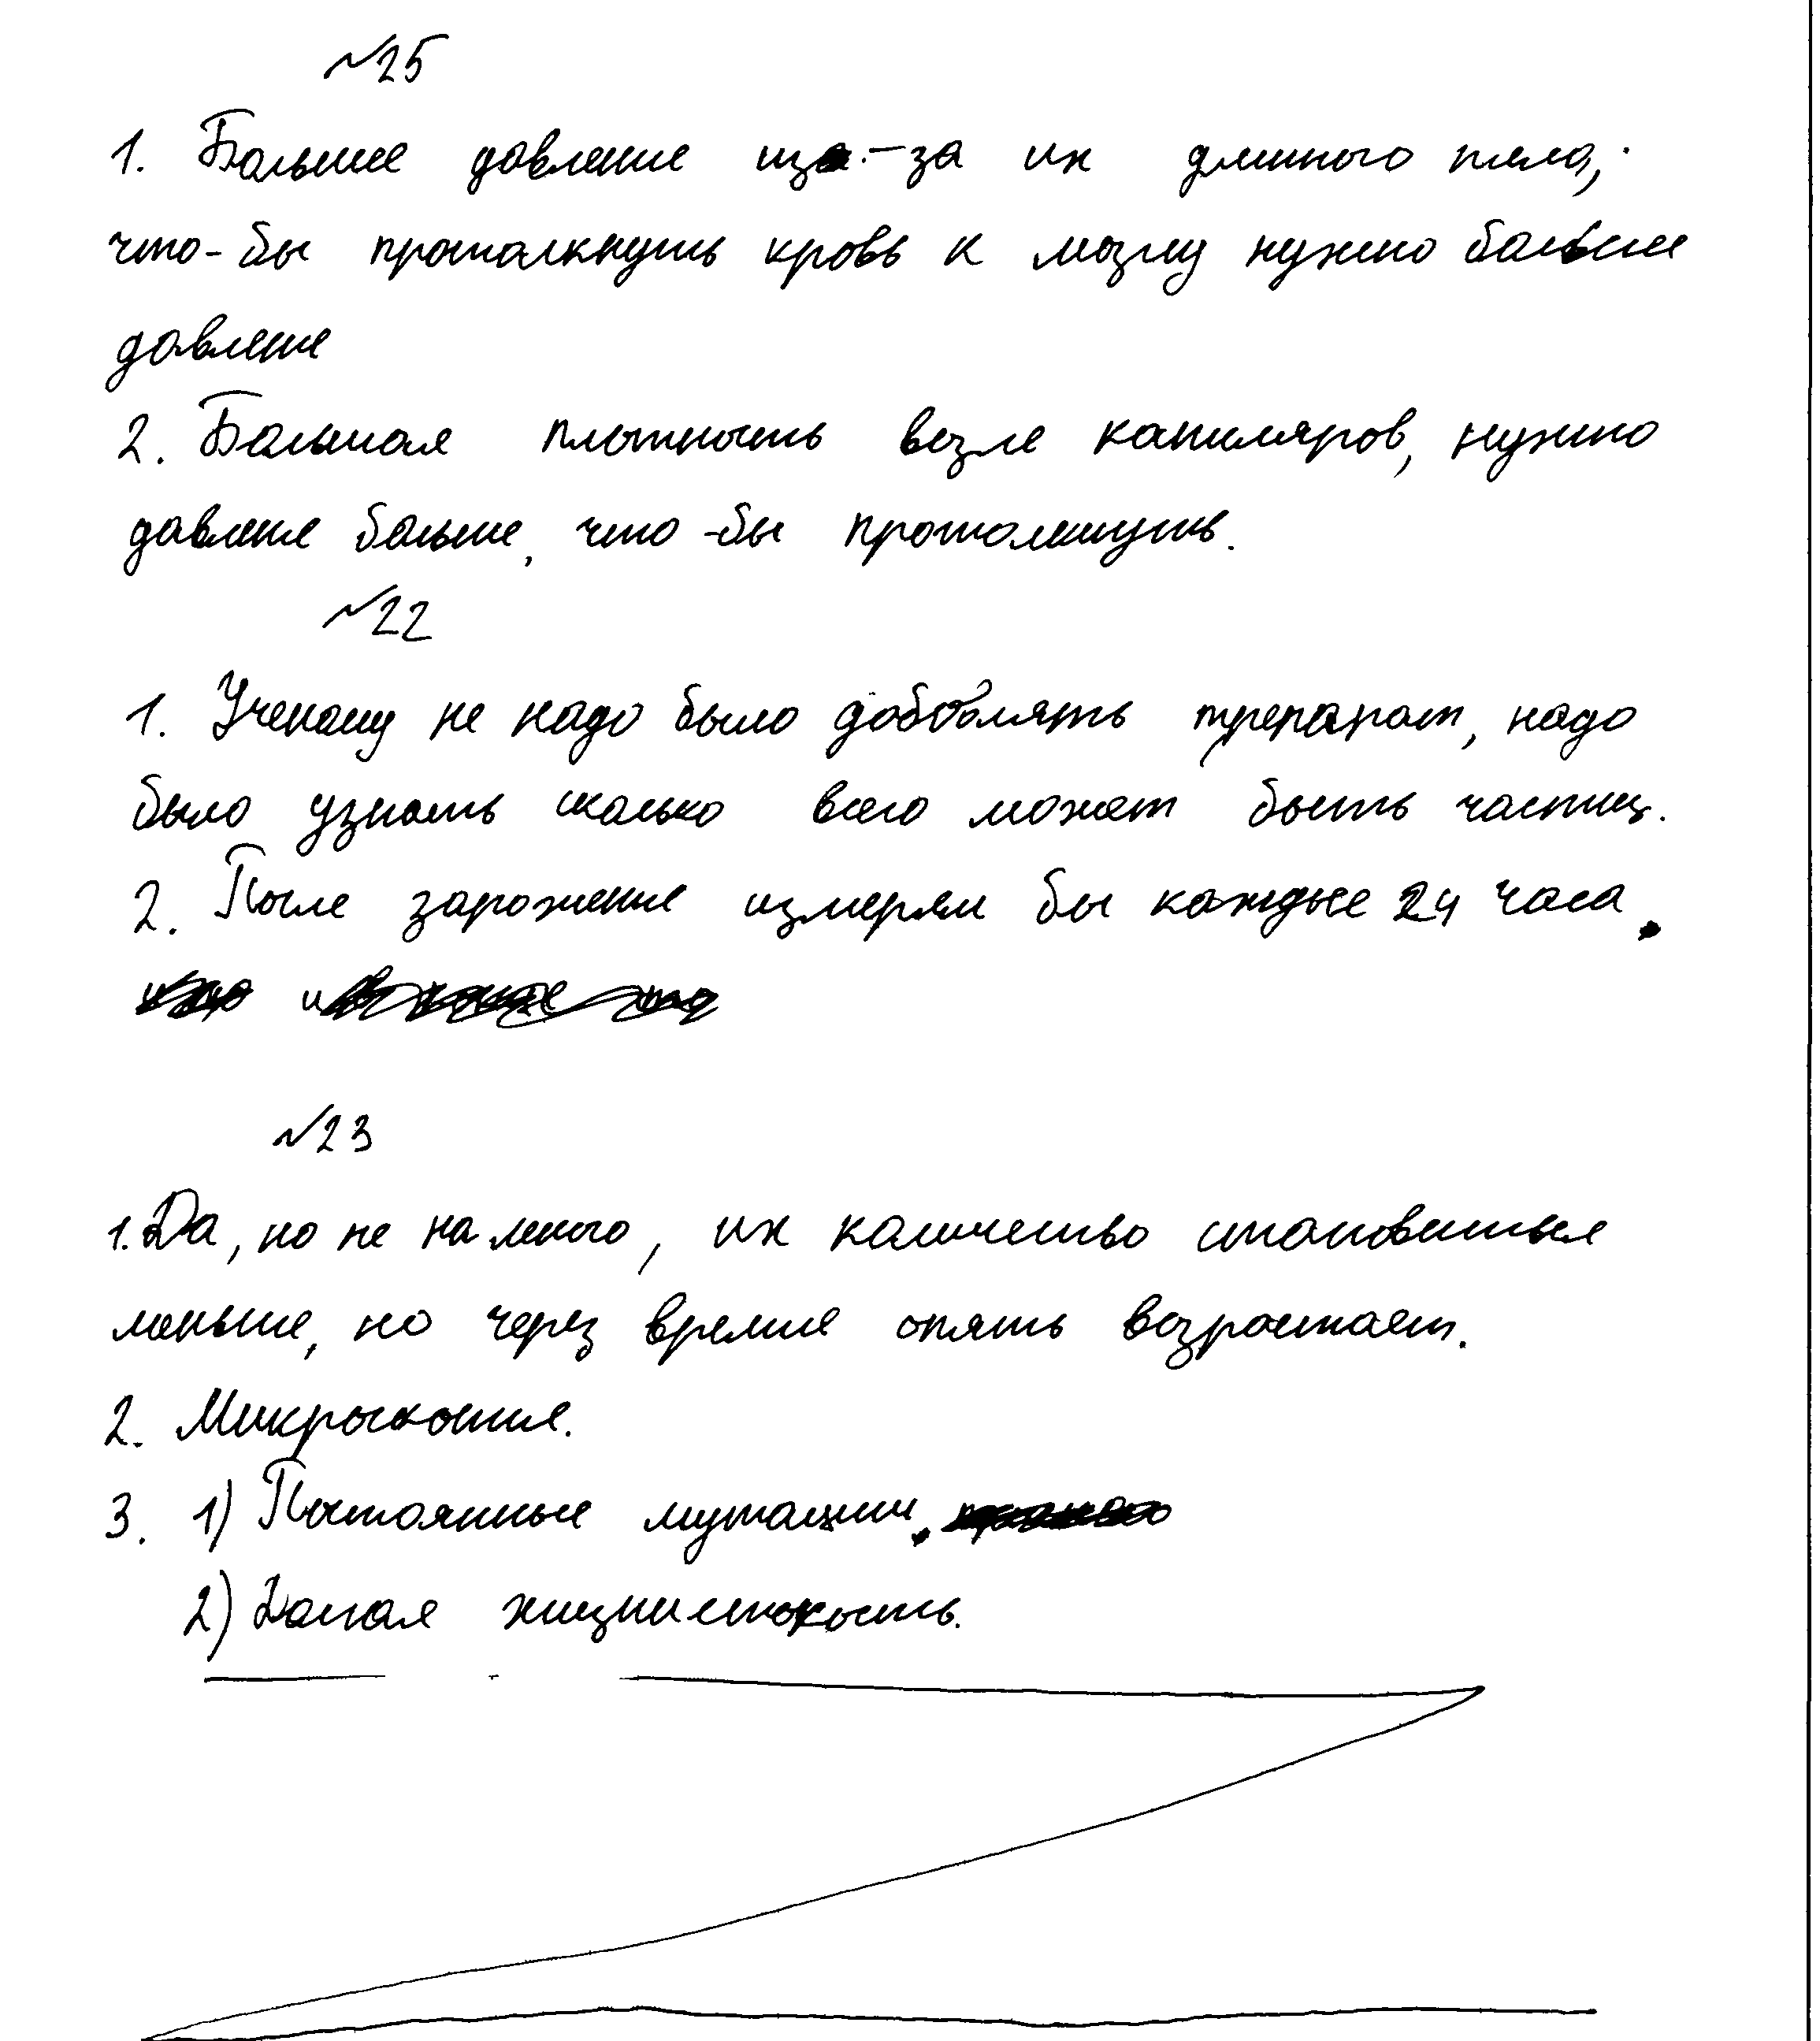 №25
1. Большее давление из-за их длинного тела,
что-бы протолкнуть кровь к мозгу нужно больше
давление
2. Большая плотность возле капиляров, нужно
давление больше, что-бы протолкнуть.
№22
1. Ученому не надо было добавлять препарат, надо
было узнать сколько всего может быть частиц.
2. После заражения измерял бы каждые 24 часа.
№23
1. Да, но не на много, их количество становиться
меньше, но через время опять возрастает.
2. Микроскопия.
3. 1) Постоянные мутации.
2) жизнистокость.